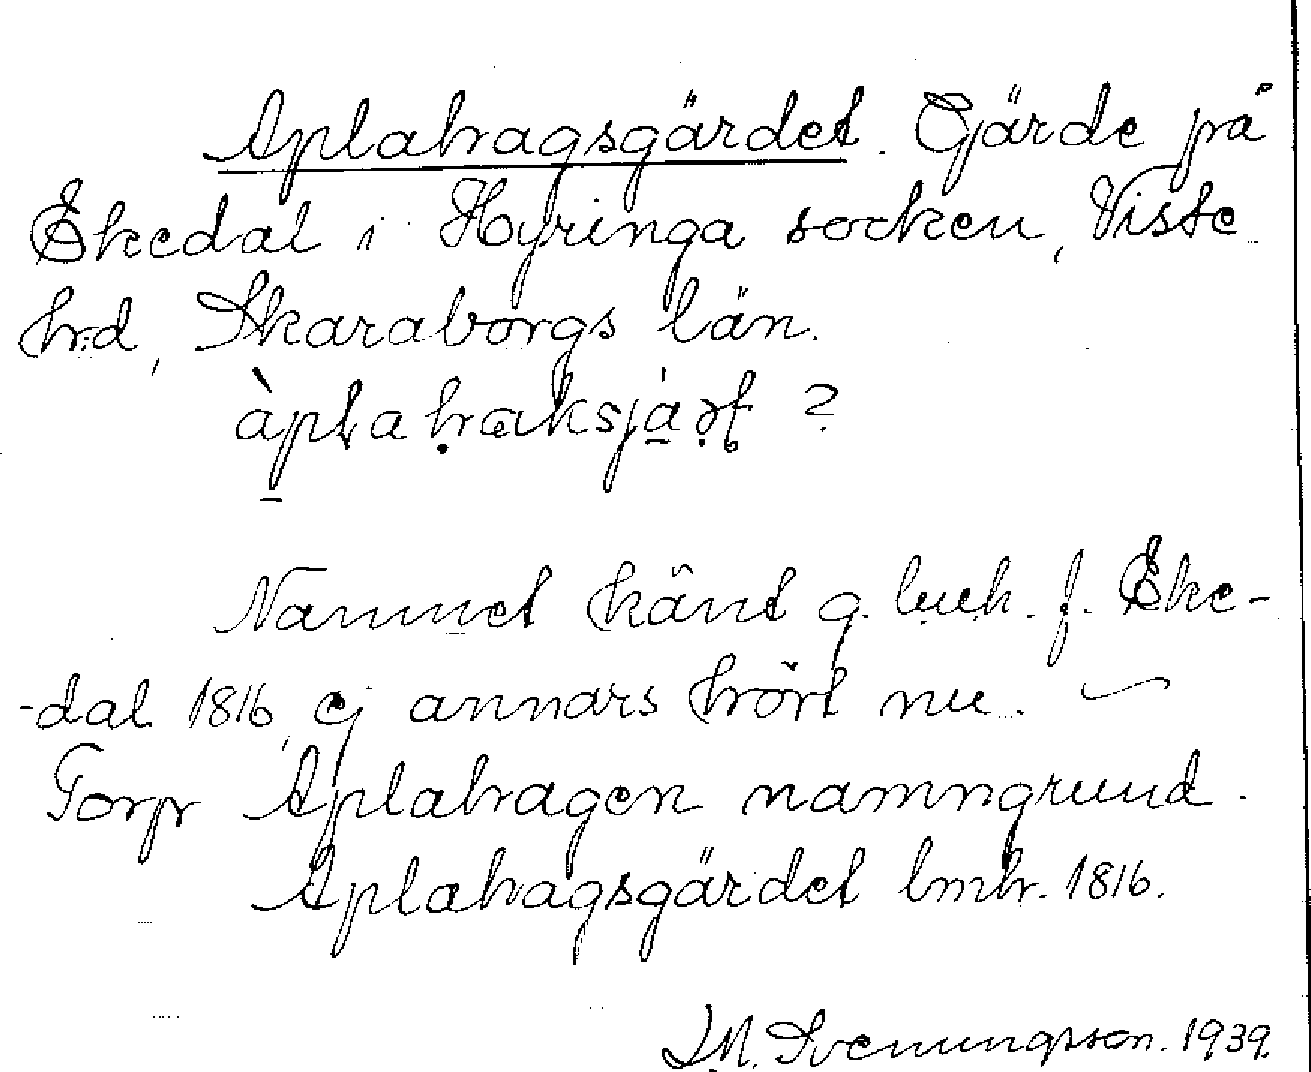 Aplahagsgärdet. Gärde på
Ekedal i Hyringa socken, Viste
hrd, Skaraborgs län.
àplahaksjàṛṭ ?
Namnet känt g. lmh. f. Eke-
-dal 1816, ej annars hört nu.
Torp Aplahagen namngrund.
Aplahagsgärdet lmh. 1816.
Svenungsson. 1939.